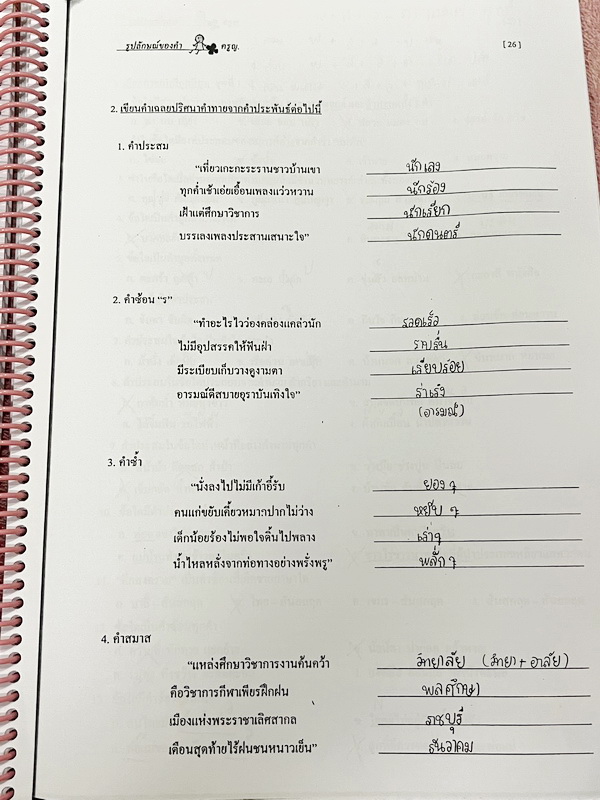 รูปลักษณ์ของคำ ครูญ. [ 26 ]
2. เขียนคำเฉลยปริศนาคำทายจากคำประพันธ์ต่อไปนี้
1. คำประสม
“เที่ยวเกะกะระรานชาวบ้านเขา นักเลง
ทุกค่ำเช้าเอ่ยเอื้อนเพลงแว่วหวาน นักร้อง
เฝ้าแต่ศึกษาวิชาการ นักเรียน
บรรเลงเพลงประสานเสนาะใจ” นักดนตรี
2. คำซ้อน “ร”
“ทำอะไรไวว่องคล่องแคล่วนัก รวดเร็ว
ไม่มีอุปสรรคให้ฟันฝ่า ราบรื่น
มีระเบียบเก็บวางดูงามตา เรียบร้อย
อารมณ์ดีสบายอุราบันเทิงใจ” ร่าเริง
(อารมณ์)
3. คำซ้ำ
“นั่งลงไปไม่มีเก้าอี้รับ ยอง ๆ
คนแก่ขยับเคี้ยวหมากปากไม่ว่าง หยับ ๆ
เด็กน้อยร้องไม่พอใจดิ้นไปพลาง เร่าๆ
น้ำไหลหลั่งจากท่อทางอย่างพรั่งพรู” พลั่ก ๆ
4. คำสมาส
“แหล่งศึกษาวิชาการงานค้นคว้า วิทยาลัย (วิทยา + อาลัย)
คือวิชาการกีฬาเพียรฝึกฝน พลศึกษา
เมืองแห่งพระราชาเลิศสากล ราชบุรี
เดือนสุดท้ายไร้ฝนชนหนาวเย็น” ธันวาคม